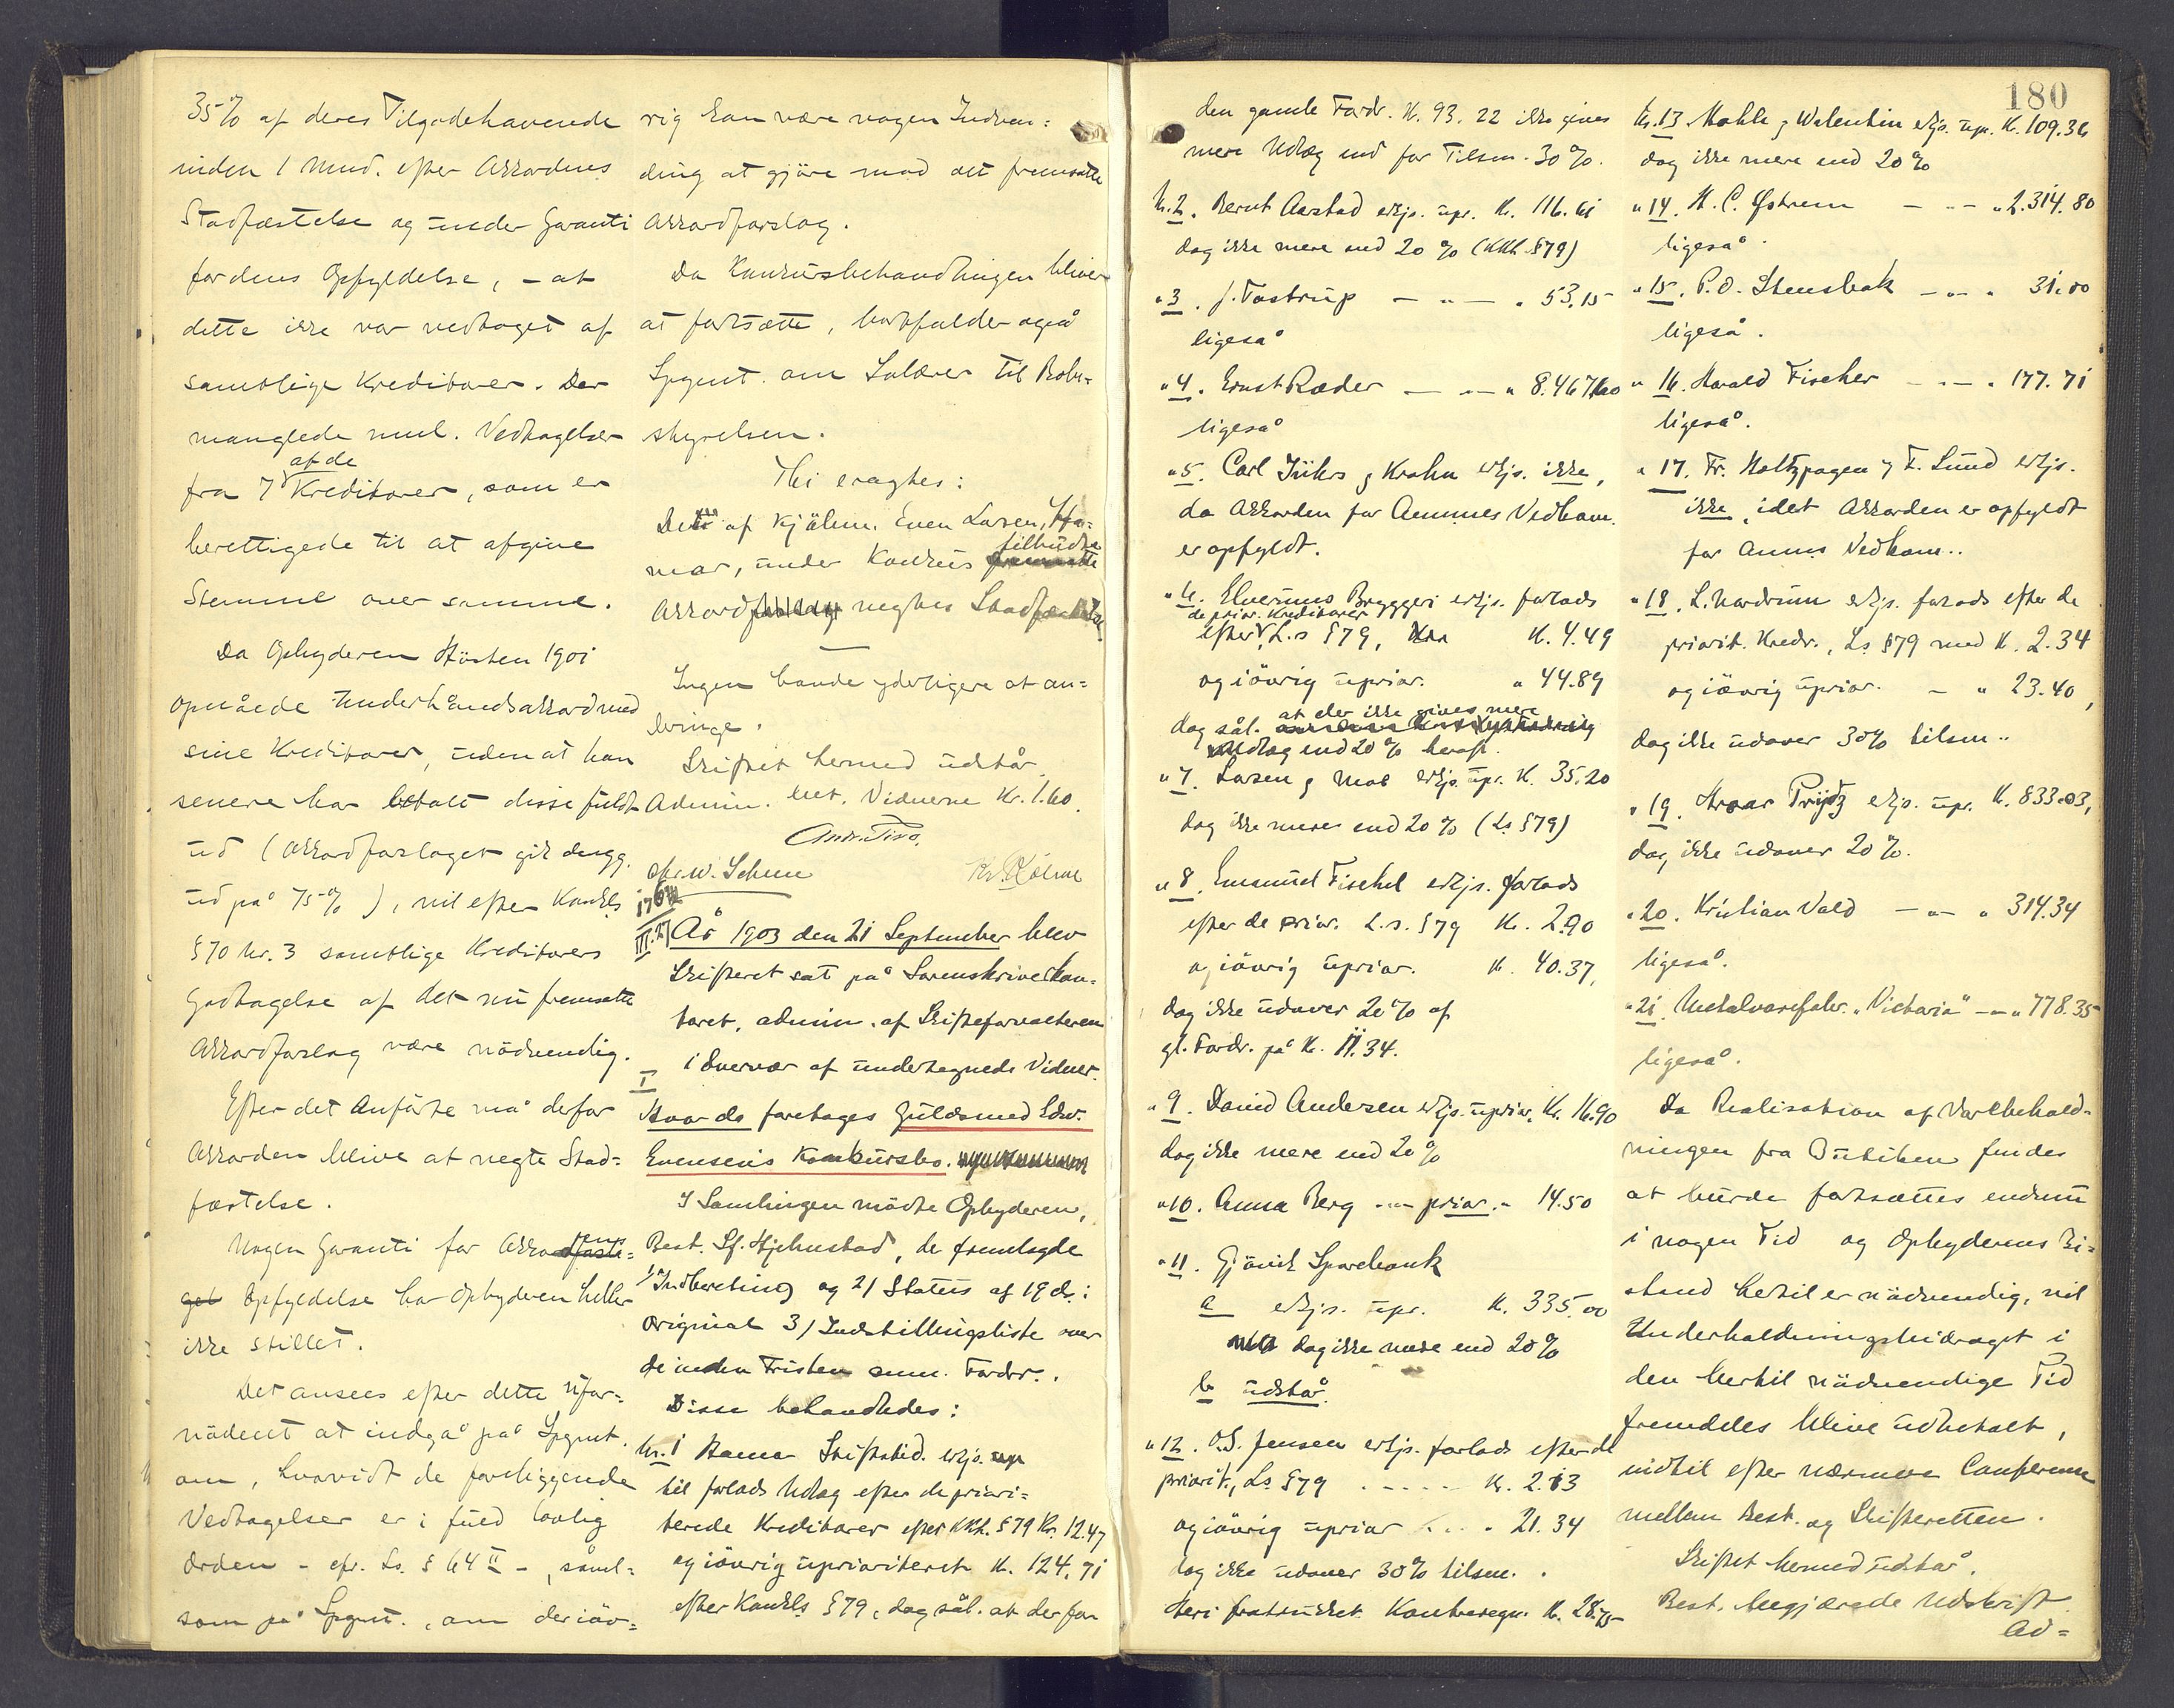 35% af deres Tilgodehavende
inden 1 Mnd. efter Akkordens
Stadfæstelse og under Garanti
for dens Opfyldelse, - at
dette ikke var vedtaget af
samtlige Kreditorer. Der
manglede nml. Vedtagelser
fra 7 af de Kreditorer, som er
berettigede til at afgive
Stemme over samme.
Da Opbyderen Høsten 1901
opnåede Underhåndsakkord med
sine Kreditorer, uden at han
senere har betalt disse fuldt
ud (Akkordforslaget gik dengg.
ud på 75%), vil efter Konkls
§70 Nr. 3 samtlige Kreditorers
Godtagelse af det nu fremsatte
Akkordforslag være nødvendig.
Efter det Anførte må derfor
Akkorden blive at negte Stad=
fæstelse.
Nogen Garanti for Akkordens
Opfyldelse har Opbyderen heller
ikke stillet.
Det ansees efter dette ufor=
nødent at indgå på Spgmt.
om, hvorvidt de foreliggende
Vedtagelser er i fuld lovlig
Orden - cfr. Ls. § 64 II -, såvel=
som på Spgmt., om der iøv=
rig kan være nogen Indven=
ding at gjøre mod det fremsatte
Akkordforslag.
Da Konkursbehandlingen bliver
at fortsætte, bortfalder også
Spgmt. om Salærer til Bobe=
styrelsen.
Thi eragtes:
Den af Kjøbm. Even Larsen, Ha=
mar, under Konkurs tilbudte
Akkord negtes Stadfæstelse.
Ingen havde yderligere at an=
bringe.
Skiftet hermed udstår.
Admin. bet. Vidnerne Kr. 1.60.
Chr. W. Schou
År 1903 den 21 September blev
Skifteret sat på Sorenskriverkon=
toret, admin. af Skifteforvalteren
i Overvær af undertegnede Vidner.
I
Hvor da foretoges Guldsmed Edw.
Evensens Konkursbo.
I Samlingen mødte Opbyderen,
Best. Sf. Hjelmstad, de fremlagde
1/ Indberetning og 2/ Status af 19 ds. i
Original 3/ Indstillingsliste over
de inden Fristen anm. Fordr..
Disse behandledes:
Nr. 1 Hamar Stiftstid. erkjs.
til forlods Udlæg efter de priori=
terede Kreditorer efter KKL. §79 Kr. 12.47
og iøvrig uprioriteret K. 124.71
efter Konkls §79, dog sål. at der for
180
den gamle Fordr. K. 93.22 ikke gives
mere Udlæg end for Tilsm. 30%.
Nr. 2. Bernt Aarstad erkjs. upr. K. 116.61
dog ikke mere end 20% (KKL §79)
" 3. J. Tostrup — " — " 53.15
ligeså
" 4. Ernst Ræder — " — " 8.467.60
ligeså
" 5. Carl Jührs & Krohn erkjs. ikke,
da Akkorden for Dennes Vedkom.
er opfyldt.
" 6. Elverums Bryggeri erkjs. forlods
efter de prior. Kreditorer, L.s §79, K. 4.49
og iøvrig uprior. " 44.89
dog sål. at der ikke gives mere
Udlæg end 20%
" 7. Larsen & Moe erkjs. upr. K. 35.20
dog ikke mere end 20% (Ls §79)
" 8. Emanuel Fischel erkjs. forlods
efter de prior. L.s. §79 Kr. 2.90
og iøvrig uprior. K. 40.37,
dog ikke udover 20% af
gl. Fordr. på K. 11.34.
" 9. David Andersen erkjs. uprior. Kr. 16.90
dog ikke mere end 20%
" 10. Anna Berg — " — prior. " 14.50
" 11. Gjøvik Sparebank
a erkjs. upr. K. 335.00
dog ikke mere end 20%
b udstår.
" 12. O.S. Jensen erkjs. forlods efter de
priorit., Ls §79 ..... K. 2.13
og iøvrig uprior ... " 21.34
dog ikke udover 30% tilsm. .
Heri fratrukket Kontraregn. K. 28.75
Nr. 13. Mohle & Walentin erkjs. upr. K. 109.36
dog ikke mere end 20%
" 14. H. C. Østrem — " — " 2.314.80
ligeså.
" 15. P. O. Stensbak — " — " 31.00
ligeså.
" 16. Harald Fischer — " — " 177.71
ligeså.
" 17. Fr. Holtzpagen & F. Lund erkjs.
ikke, idet Akkorden er opfyldt
for Annes Vedkom..
" 18. L. Nordrum erkjs. forlods efter de
priorit. Kredr., Ls §79 med K. 2.34
og iøvrig uprior. — " 23.40,
dog ikke udover 30% tilsm..
" 19. Hroar Prydz erkjs. upr. K. 833.03,
dog ikke udover 20%.
" 20. Kristian Vold — " — " 314.34
ligeså.
" 21. Metalvarefabr. "Victoria" — " — " 778.35
ligeså.
Da Realisation af Varebehold=
ningen fra Butiken findes
at burde fortsættes endnu
i nogen Tid og Opbyderens Bi=
stand hertil er nødvendig, vil
Underholdningsbidraget i
den hertil nødvendige Tid
fremdeles blive udbetalt,
indtil efter nærmere Conference
mellem Best. og Skifteretten.
Skiftet hermed udstår.
Best. begjærede Udskrift.
Ad=